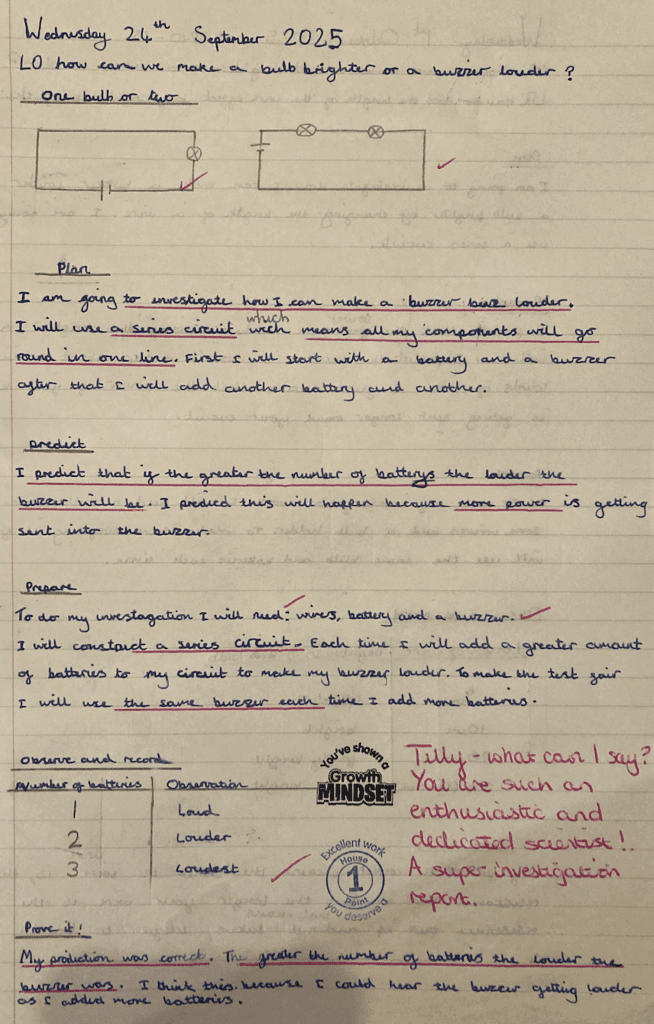 Wednesday 24th September 2025
LO how can we make a bulb brighter or a buzzer louder?
One bulb or two
Plan
I am going to investigate how I can make a buzzer louder.
I will use a series circuit wich which means all my components will go
round in one line. First I will start with a battery and a buzzer
after that I will add another battery and another.
Predict
I predict that if the greater the number of batterys the louder the
buzzer will be. I predict this will happen because more power is getting
sent into the buzzer.
Prepare
To do my investagation I will need: wires, battery and a buzzer.
I will construct a series circuit. Each time I will add a greater amount
of batteries to my circuit to make my buzzer louder. To make the test fair
I will use the same buzzer each time I add more batteries.
Observe and record
Number of batteries Observation
1 Loud
2 Louder
3 Loudest
You've shown a
Growth
MINDSET
Excellent work
House
1
Point
you deserve a
Tilly - what can I say?
You are such an
enthusiastic and
dedicated scientist!
A super investigation
report.
Prove it!
My prediction was correct. The greater the number of batteries the louder the
buzzer was. I think this because I could hear the buzzer getting louder
as I added more batteries.